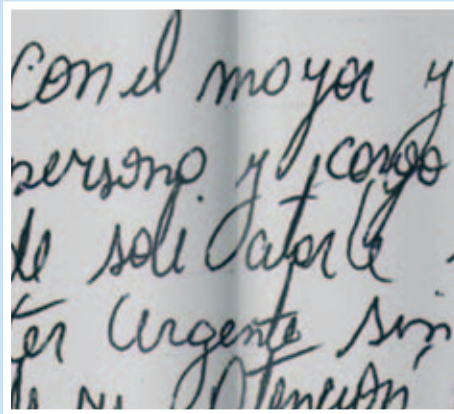 con el mayor y
persona y cargo
de solicitarle
ter Urgente sin
atención